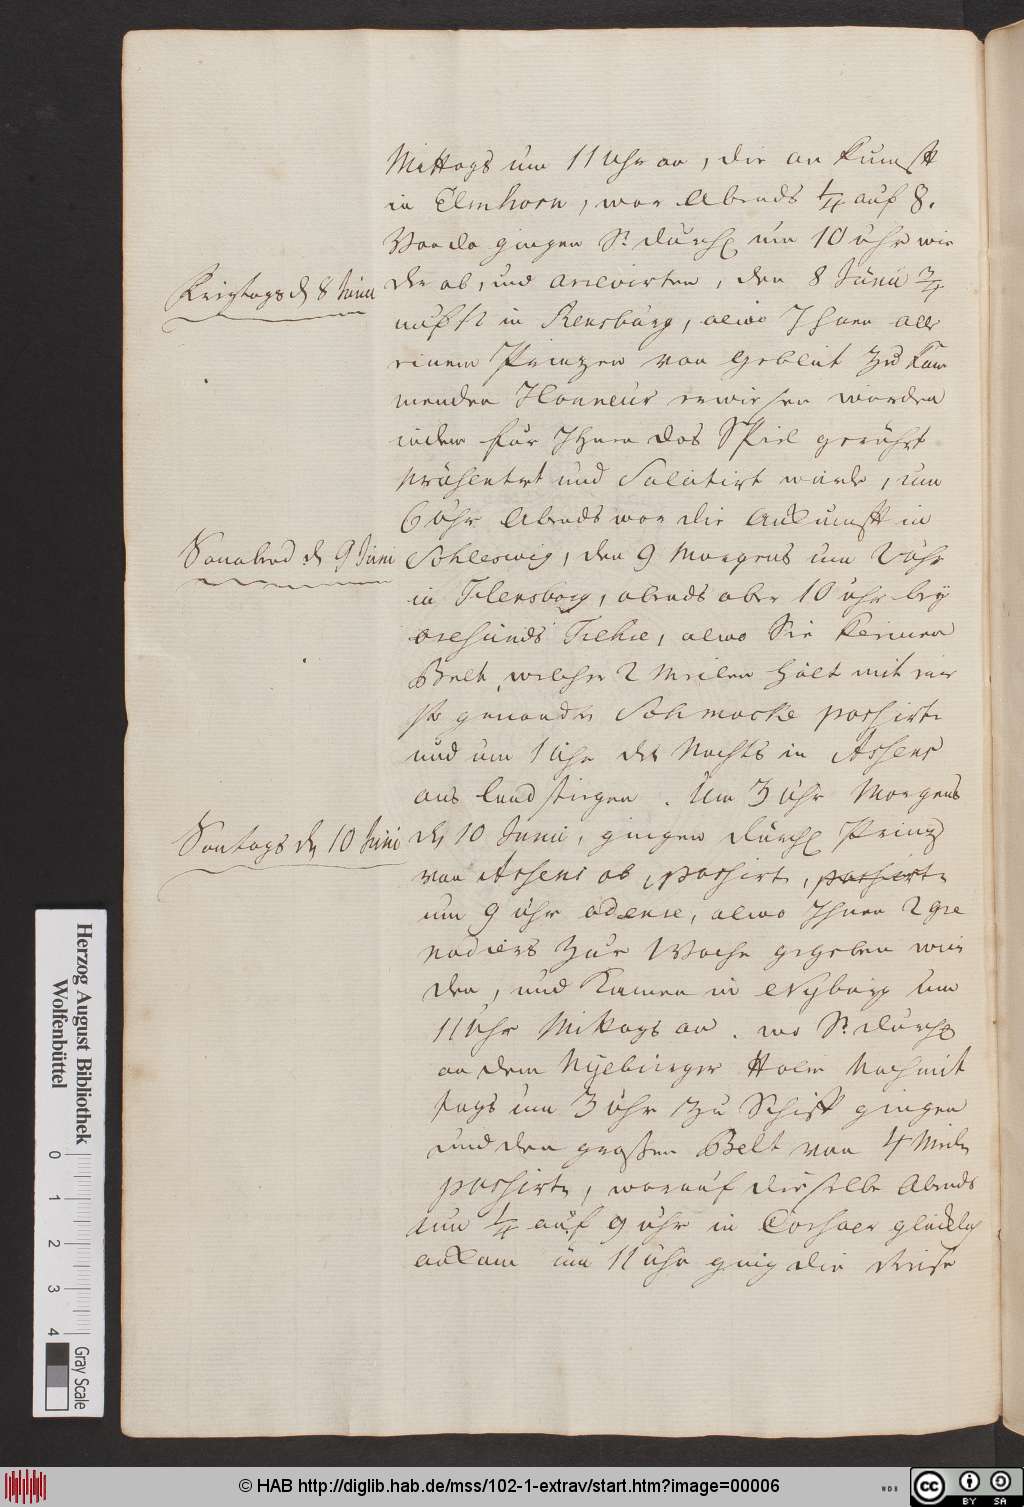 Mittags um 11 Uhr an, die an Kunfft
in Elmhorn, war Abends 1/4 auf 8.
Von da gingen Sr Durchl um 10 Uhr wie
Freytags d 8 Junii
der ab, und arivirten, den 8 Junii 3/4
auf 12 in Rensburg, alwo Ihnen alle
einem Prinzen von Geblüt zu kom
menden Honneurs erwiesen worden
indem für Ihnen das Spiel gerührt
präsentirt und Salutirt wurde, um
6 Uhr Abends war die Ankunfft in
Sonabend d 9 Juni
Schleswig, den 9 Morgens um 2 Uhr
in Flensborg, abends aber 10 Uhr bey
Aresunds Fehre, alwo Sie kleinen
Belt, welcher 2 Meilen hält mit einer
so genandten Schmacke passirte
und um 1 Uhr des Nachts in Assens
ans Land stiegen. Um 3 Uhr Morgens
Sontags den 10 Juni
den 10 Junii, gingen Durchl Prinz
von Assens ab, passirte, passirte
um 9 Uhr Odense, alwo Ihnen 2 Gre
nadiers zur Wache gegeben wur
den, und kamen in Nyborg um
11 Uhr Mittags an. wo Sr Durchl
an dem Nyeburger Holm Nachmit
tags um 3 Uhr zu Schiff gingen
und den großen Belt von 4 Meilen
passirten, worauf dieselbe Abends
um 1/4 auf 9 Uhr in Corsoer glücklich
ankam um 11 Uhr ging die Reise
Herzog August Bibliothek
Wolfenbüttel
0 1 2 3 4
Gray Scale
© HAB http://diglib.hab.de/mss/102-1-extrav/start.htm?image=00006
WDB
CC BY SA